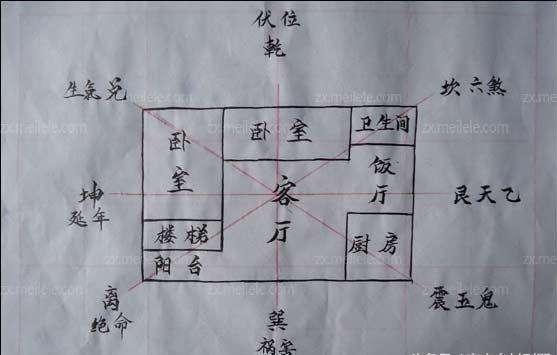 伏位
乾
生氣兑
坎六煞
zx.meilele.com
zx.meilele.com
卧室
卧室
卫生间
饭厅
坤
延年
客厅
艮天乙
楼梯
厨房
阳台
zx.meilele.com
zx.meilele.com
离
绝命
巽
祸害
震五鬼